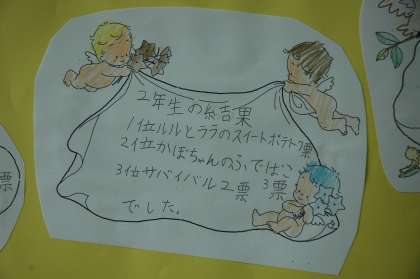 2年生の結果
1位ルルとララのスイートポテト7票
2位かぼちゃんのふではこ
3票
3位サバイバル2票
でした。
票